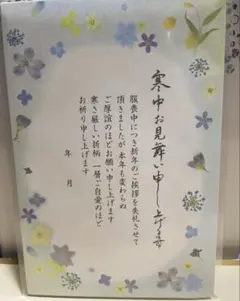 寒中お見舞い申し上げます
服喪中につき新年のご挨拶を失礼させて
頂きましたが本年も変わらぬ
ご厚誼のほどお願い申し上げます
寒さ厳しい折柄一層ご自愛のほど
お祈り申し上げます
年 月